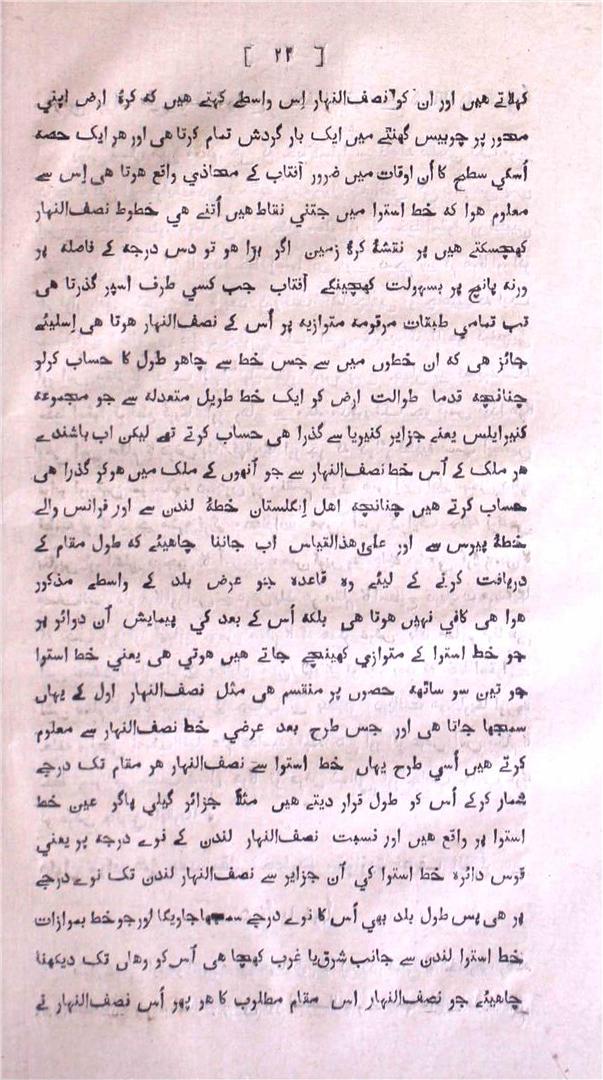 [ ۲۴ ]
کہلاتے هیں اور ان کو نصف‌النہار اِس واسطے کہتے هیں کہ کرۂ ارض اپني
محور پر چوبیس گھنٹے میں ایک بار گردش تمام کرتا هی اور هر ایک حصہ
اُسکي سطح کا اُن اوقات میں ضرور آفتاب کے محاذي واقع هوتا هی اِس سے
معلوم هوا کہ خط استوا میں جتني نقاط هیں اُتنے هي خطوط نصف‌النہار
کھچسکتے هیں پر نقشۂ کرۂ زمین اگر بڑا هو تو دس درجہ کے فاصلہ پر
ورنہ پانچ پر بسہولت کھچینگے آفتاب جب کسي طرف اسپر گذرتا هی
تب تمامي طبقات مرقومہ متوازیہ پر اُس کے نصف‌النہار هوتا هی اِسلیئے
جائز هی کہ ان خطوں میں سے جس خط سے چاهو طول کا حساب کرلو
چنانچہ قدما طوالت ارض کو ایک خط طویل متعدلہ سے جو مجموعہ
کنیوایلس یعنے جزایر کنیریا سے گذرا هی حساب کرتے تھے لیکن اب باشندے
هر ملک کے اُس خط نصف‌النہار سے جو اُنھوں کے ملک میں هوکر گذرا هی
حساب کرتے هیں چنانچہ اهل اِنگلستان خطۂ لندن سے اور فرانس والے
خطۂ پیرس سے اور علیٰ هذالقیاس اب جاننا چاهیئے کہ طول مقام کے
دریافت کرنے کے لیئے وہ قاعدہ جو عرض بلد کے واسطے مذکور
هوا هی کافي نہیں هوتا هی بلکہ اُس کے بعد کي پیمایش اُن دوائر پر
جو خط استوا کے متوازي کھینچے جاتے هیں هوتي هی یعني خط استوا
جو تین سو ساٹھہ حصوں پر منقسم هی مثل نصف‌النہار اول کے یہاں
سمجھا جاتا هی اور جس طرح بعد عرضي خط نصف‌النہار سے معلوم
کرتے هیں اُسي طرح یہاں خط استوا سے نصف‌النہار هر مقام تک درجے
شمار کرکے اُس کو طول قرار دیتے هیں مثلاً جزائر گیلي پاگو عین خط
استوا پر واقع هیں اور نسبت نصف‌النہار لندن کے نوے درجہ پر یعني
قوس دائرہ خط استوا کي اُن جزایر سے نصف‌النہار لندن تک نوے درجے
پر هی پس طول بلد بھي اُس کا نوے درجے سمجھا جاویگا اور جو خط بموازات
خط استوا لندن سے جانب شرق یا غرب کھچا هی اُس کو وهاں تک دیکھنا
چاهیئے جو نصف‌النہار اس مقام مطلوب کا هو پھر اُس نصف‌النہار نے